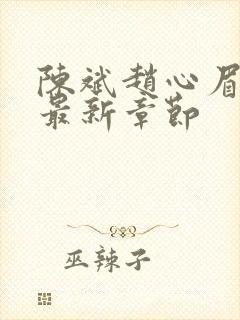 陳斌趙心眉
最新章節
巫辣子